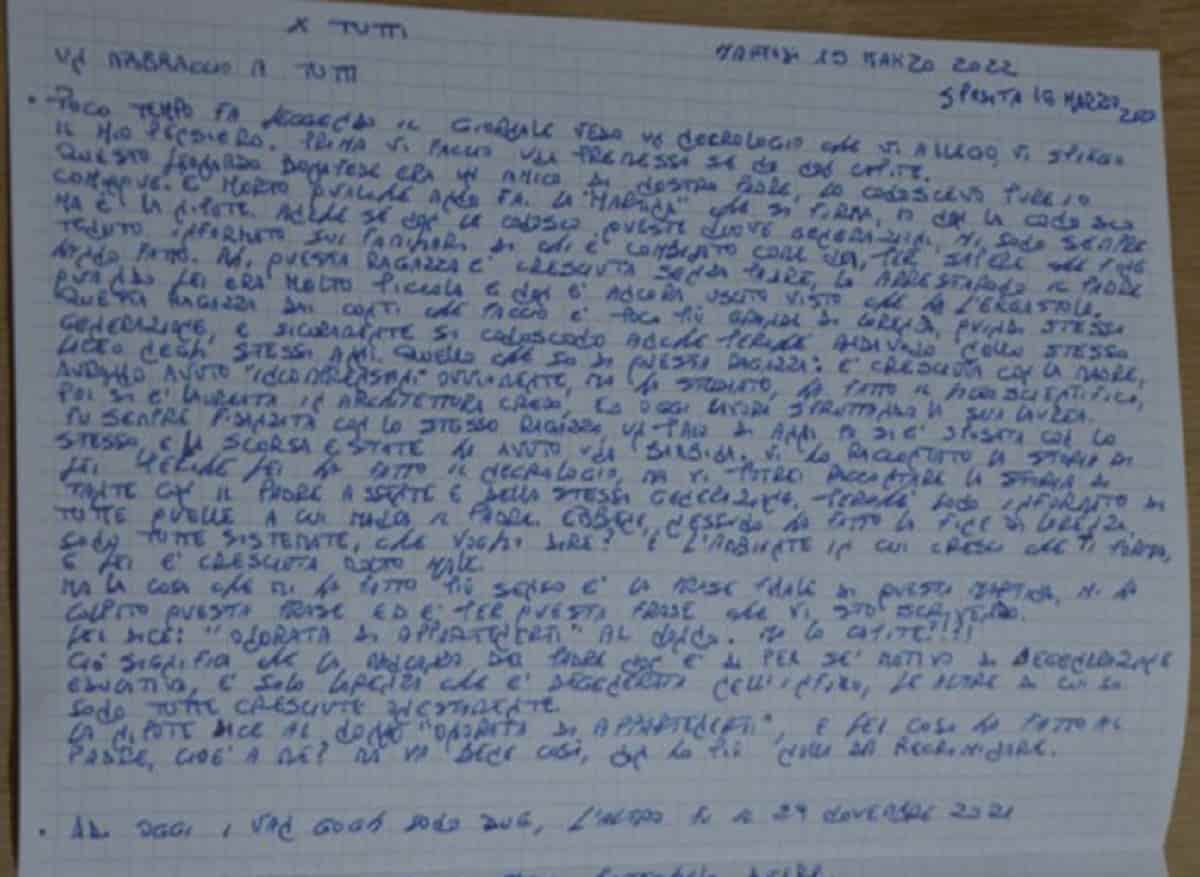 X TUTTI
MARTEDÌ 15 MARZO 2022
UN ABBRACCIO A TUTTI
SPEDITA 18 MARZO 2022
• POCO TEMPO FA LEGGENDO IL GIORNALE VEDO UN NECROLOGIO CHE VI ALLEGO, VI SPIEGO
IL MIO PENSIERO. PRIMA VI FACCIO UNA PREMESSA SE NO NON CAPITE.
QUESTO LEONARDO BONAFEDE ERA UN AMICO DI NOSTRO PADRE, LO CONOSCEVO PURE IO
COMUNQUE. È MORTO QUALCHE ANNO FA. LA "MARTINA" CHE SI FIRMA, IO NON LA CONOSCO
MA È LA NIPOTE. ANCHE SE NON LE CONOSCO QUESTE NUOVE GENERAZIONI, MI SONO SEMPRE
TENUTO INFORMATO SUI FAMILIARI DI CHI È COMBINATO COME ME, PER SAPERE CHE FINE
HANNO FATTO. QUESTA RAGAZZA È CRESCIUTA SENZA PADRE, LO ARRESTARONO IL PADRE
QUANDO LEI ERA MOLTO PICCOLA E NON È ANCORA USCITO VISTO CHE HA L'ERGASTOLO.
QUESTA RAGAZZA DAI CONTI CHE FACCIO È POCO PIÙ GRANDE DI LORENZA, QUINDI STESSA
GENERAZIONE, E SICURAMENTE SI CONOSCONO ANCHE PERCHÉ ANDAVANO NELLO STESSO
LICEO NEGLI STESSI ANNI. QUELLO CHE SO DI QUESTA RAGAZZA: È CRESCIUTA CON LA MADRE,
AVRANNO AVUTO "INCOMPRENSIONI" OVVIAMENTE, MA HA STUDIATO, HA FATTO IL LICEO SCIENTIFICO,
POI SI È LAUREATA IN ARCHITETTURA CREDO, ED OGGI LAVORA SFRUTTANDO LA SUA LAUREA.
FU SEMPRE FIDANZATA CON LO STESSO RAGAZZO, UN PAIO DI ANNI FA SI È SPOSATA CON LO
STESSO, E LA SCORSA ESTATE HA AVUTO UNA BAMBINA. VI HO RACCONTATO LA STORIA DI
LEI PERCHÉ LEI HA FATTO IL NECROLOGIO, MA VI POTREI RACCONTARE LA STORIA DI
TANTE CON IL PADRE ASSENTE E DELLA STESSA GENERAZIONE, PERCHÉ SONO INFORMATO DI
TUTTE QUELLE A CUI MANCA IL PADRE. EBBENE, NESSUNA HA FATTO LA FINE DI LORENZA,
SONO TUTTE SISTEMATE, CHE VOGLIO DIRE? È L'AMBIENTE IN CUI CRESCI CHE TI FORMA,
E LEI È CRESCIUTA MOLTO MALE.
MA LA COSA CHE MI HA FATTO PIÙ SENSO È LA FRASE FINALE DI QUESTA MARTINA, MI HA
COLPITO QUESTA FRASE ED È PER QUESTA FRASE CHE VI STO SCRIVENDO.
LEI DICE: "ONORATA DI APPARTENERTI" AL NONNO. MA LO CAPITE!!!!
CIÒ SIGNIFICA CHE LA MANCANZA DEL PADRE NON È DI PER SÉ MOTIVO DI DEGENERAZIONE
EDUCATIVA, È SOLO LORENZA CHE È DEGENERATA NELL'INFIMO, LE ALTRE DI CUI SO
SONO TUTTE CRESCIUTE ONESTAMENTE.
LA NIPOTE DICE AL NONNO "ONORATA DI APPARTENERTI", E LEI COSA HA FATTO AL
PADRE, CIOÈ A ME? MA VA BENE COSÌ, NON HO PIÙ NULLA DA RECRIMINARE.
• AD OGGI I VAN GOGH SONO DUE, L'ALTRO FU IL 29 NOVEMBRE 2021